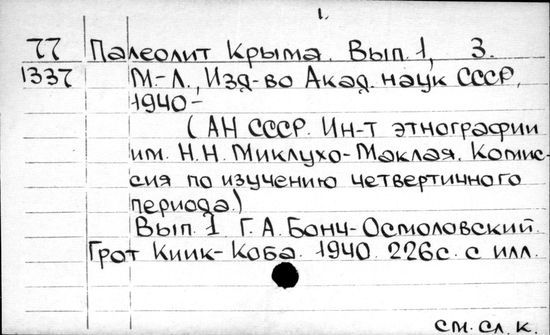 1.
77 Палеолит Крыма. Вып. 1, 3.
1337 М.-Л., Изд-во Акад. наук СССР,
1940-
(АН СССР. Ин-т этнографии
им. Н.Н. Миклухо-Маклая. Комис-
сия по изучению четвертичного
периода.)
Вып. 1. Г.А. Бонч-Осмоловский.
Грот Киик-Коба. 1940. 226с. с илл.
см. сл. к.